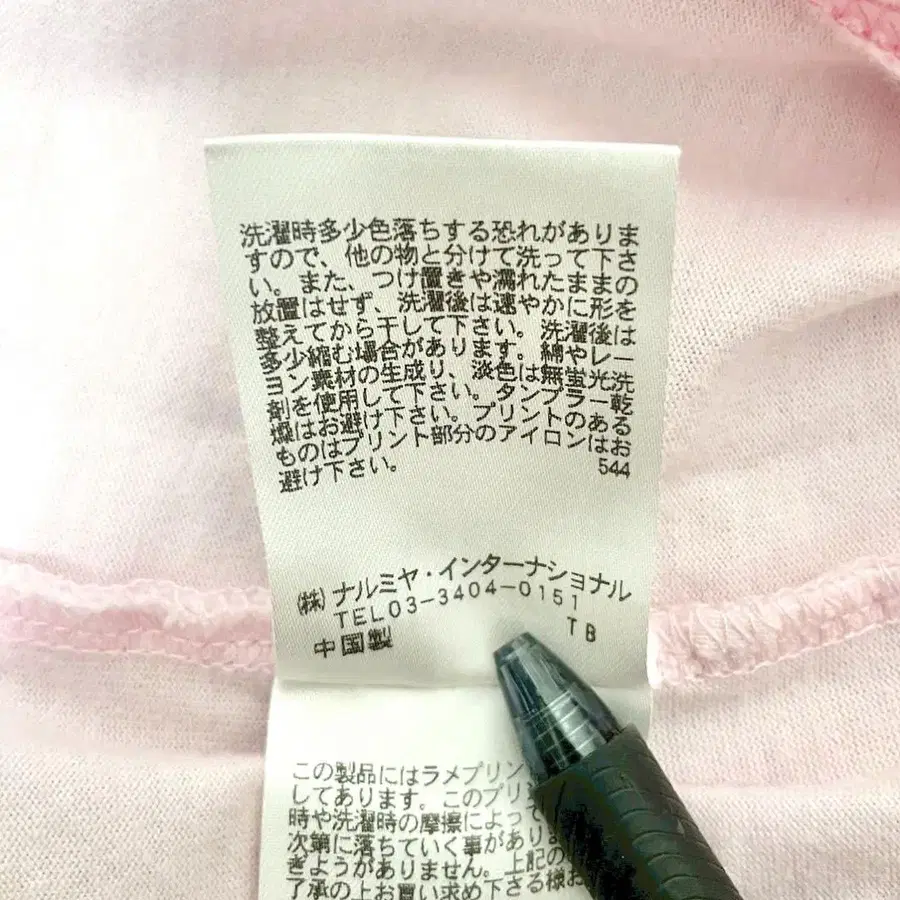 洗濯時多少色落ちする恐れがありま
すので、他の物と分けて洗って下さ
い。また、つけ置きや濡れたままの
放置はせず、洗濯後は速やかに形を
整えてから干して下さい。洗濯後は
多少縮む場合があります。綿やレー
ヨン素材の生成り、淡色は無蛍光洗
剤を使用して下さい。タンブラー乾
燥はお避け下さい。プリントのある
ものはプリント部分のアイロンはお
避け下さい。 544
㈱ナルミヤ・インターナショナル
TEL03-3404-0151
中国製 TB
この製品にはラメプリン
してあります。このプリ
時や洗濯時の摩擦によって
次第に落ちていく事があります
ぎようがありません。上記の
了承の上お買い求め下さる様お